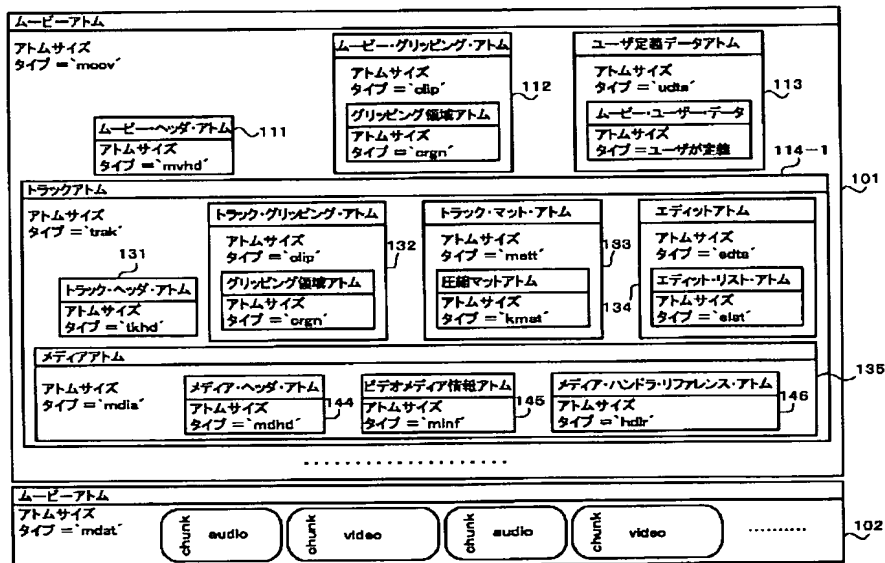 ムービーアトム
アトムサイズ
タイプ＝`moov'
ムービー・グリッピング・アトム
アトムサイズ
タイプ＝`clip'
グリッピング領域アトム
アトムサイズ
タイプ＝`crgn'
112
ユーザ定義データアトム
アトムサイズ
タイプ＝`udta'
ムービー・ユーザー・データ
アトムサイズ
タイプ＝ユーザが定義
113
ムービー・ヘッダ・アトム
アトムサイズ
タイプ＝`mvhd'
111
114－1
101
トラックアトム
アトムサイズ
タイプ＝`trak'
131
トラック・ヘッダ・アトム
アトムサイズ
タイプ＝`tkhd'
トラック・グリッピング・アトム
アトムサイズ
タイプ＝`clip'
グリッピング領域アトム
アトムサイズ
タイプ＝`crgn'
132
トラック・マット・アトム
アトムサイズ
タイプ＝`matt'
圧縮マットアトム
アトムサイズ
タイプ＝`kmat'
133
134
エディットアトム
アトムサイズ
タイプ＝`edts'
エディット・リスト・アトム
アトムサイズ
タイプ＝`elst'
メディアアトム
アトムサイズ
タイプ＝`mdia'
135
メディア・ヘッダ・アトム
アトムサイズ
タイプ＝`mdhd'
144
ビデオメディア情報アトム
アトムサイズ
タイプ＝`minf'
145
メディア・ハンドラ・リファレンス・アトム
アトムサイズ
タイプ＝`hdlr'
146
‥‥‥‥‥‥‥‥‥‥
ムービーアトム
アトムサイズ
タイプ＝`mdat'
chunk
audio
chunk
video
chunk
audio
chunk
video
‥‥‥‥‥
102